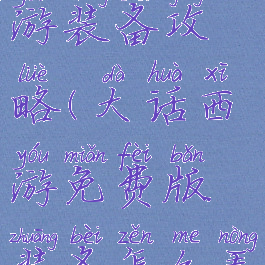 游装备攻
lüè dà huà xī
略(大话西
yóu miǎn fèi bǎn
游免费版
zhuāng bèi zěn me nòng
装备怎么弄